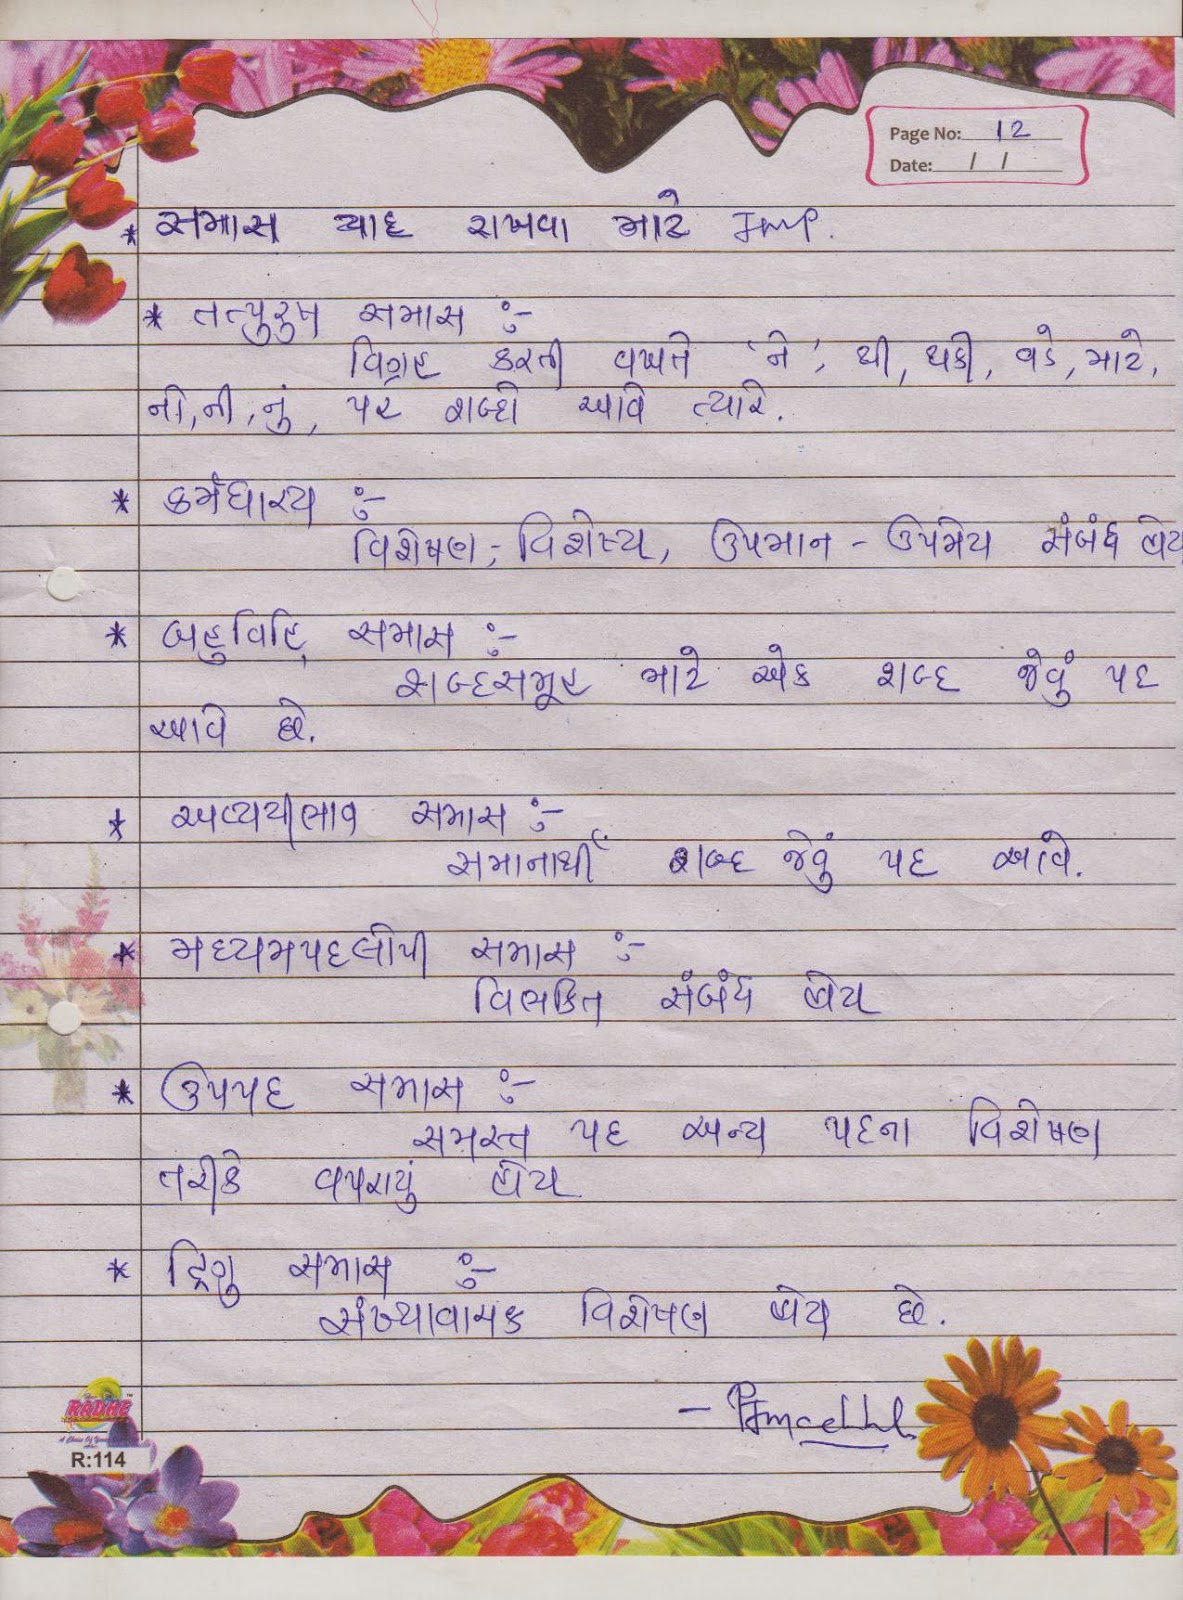 Page No: 12
Date: / /
* સમાસ યાદ રાખવા માટે Imp.
* તત્પુરુષ સમાસ :-
વિગ્રહ કરતી વખતે 'ને', થી, થકી, વડે, માટે,
નો, ની, નું, પર શબ્દો આવે ત્યારે.
* કર્મધારય :-
વિશેષણ - વિશેષ્ય, ઉપમાન - ઉપમેય સંબંધ હોય
* બહુવિહિ સમાસ :-
શબ્દસમૂહ માટે એક શબ્દ જેવું પદ
આવે છે.
* અવ્યયીભાવ સમાસ :-
સમાનાર્થી શબ્દ જેવું પદ આવે.
* મધ્યમપદલોપી સમાસ :-
વિભક્તિ સંબંધ હોય
* ઉપપદ સમાસ :-
સમસ્ત પદ અન્ય પદના વિશેષણ
તરીકે વપરાયું હોય
* દ્વિગુ સમાસ :-
સંખ્યાવાચક વિશેષણ હોય છે.
RADHE
R:114